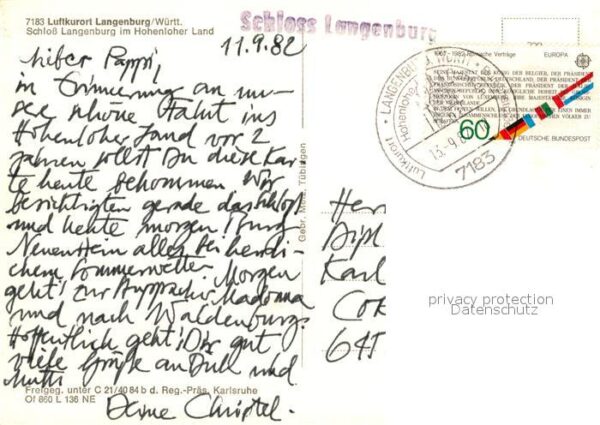 7183 Luftkurort Langenburg/Württ.
Schloß Langenburg im Hohenloher Land
Schloss Langenburg
11.9.82
Lieber Pappi,
in Erinnerung an un-
sere schöne Fahrt ins
Hohenloher Land vor 2
Jahren sollst Du diese Kar-
te heute bekommen. Wir
besichtigten gerade das Schloß
und heute morgen Burg
Neuenstein alles bei herrli-
chem Sommerwetter. Morgen
geht's zur Stuppacher Madonna
und nach Waldenburg.
Hoffentlich geht's Dir gut
viele Grüße an Dich und
Mutti
Deine Christel.
Freigeg. unter C 21/4084 b d. Reg.-Präs. Karlsruhe
Of 860 L 136 NE
Gebr. Metz, Tübingen
1957-1982 Römische Verträge
EUROPA
CEPT
60
DEUTSCHE BUNDESPOST
LANGENBURG, WÜRTT
Luftkurort
Hohenlohe
7183
Herr
Dipl
Karl
645
privacy protection
Datenschutz